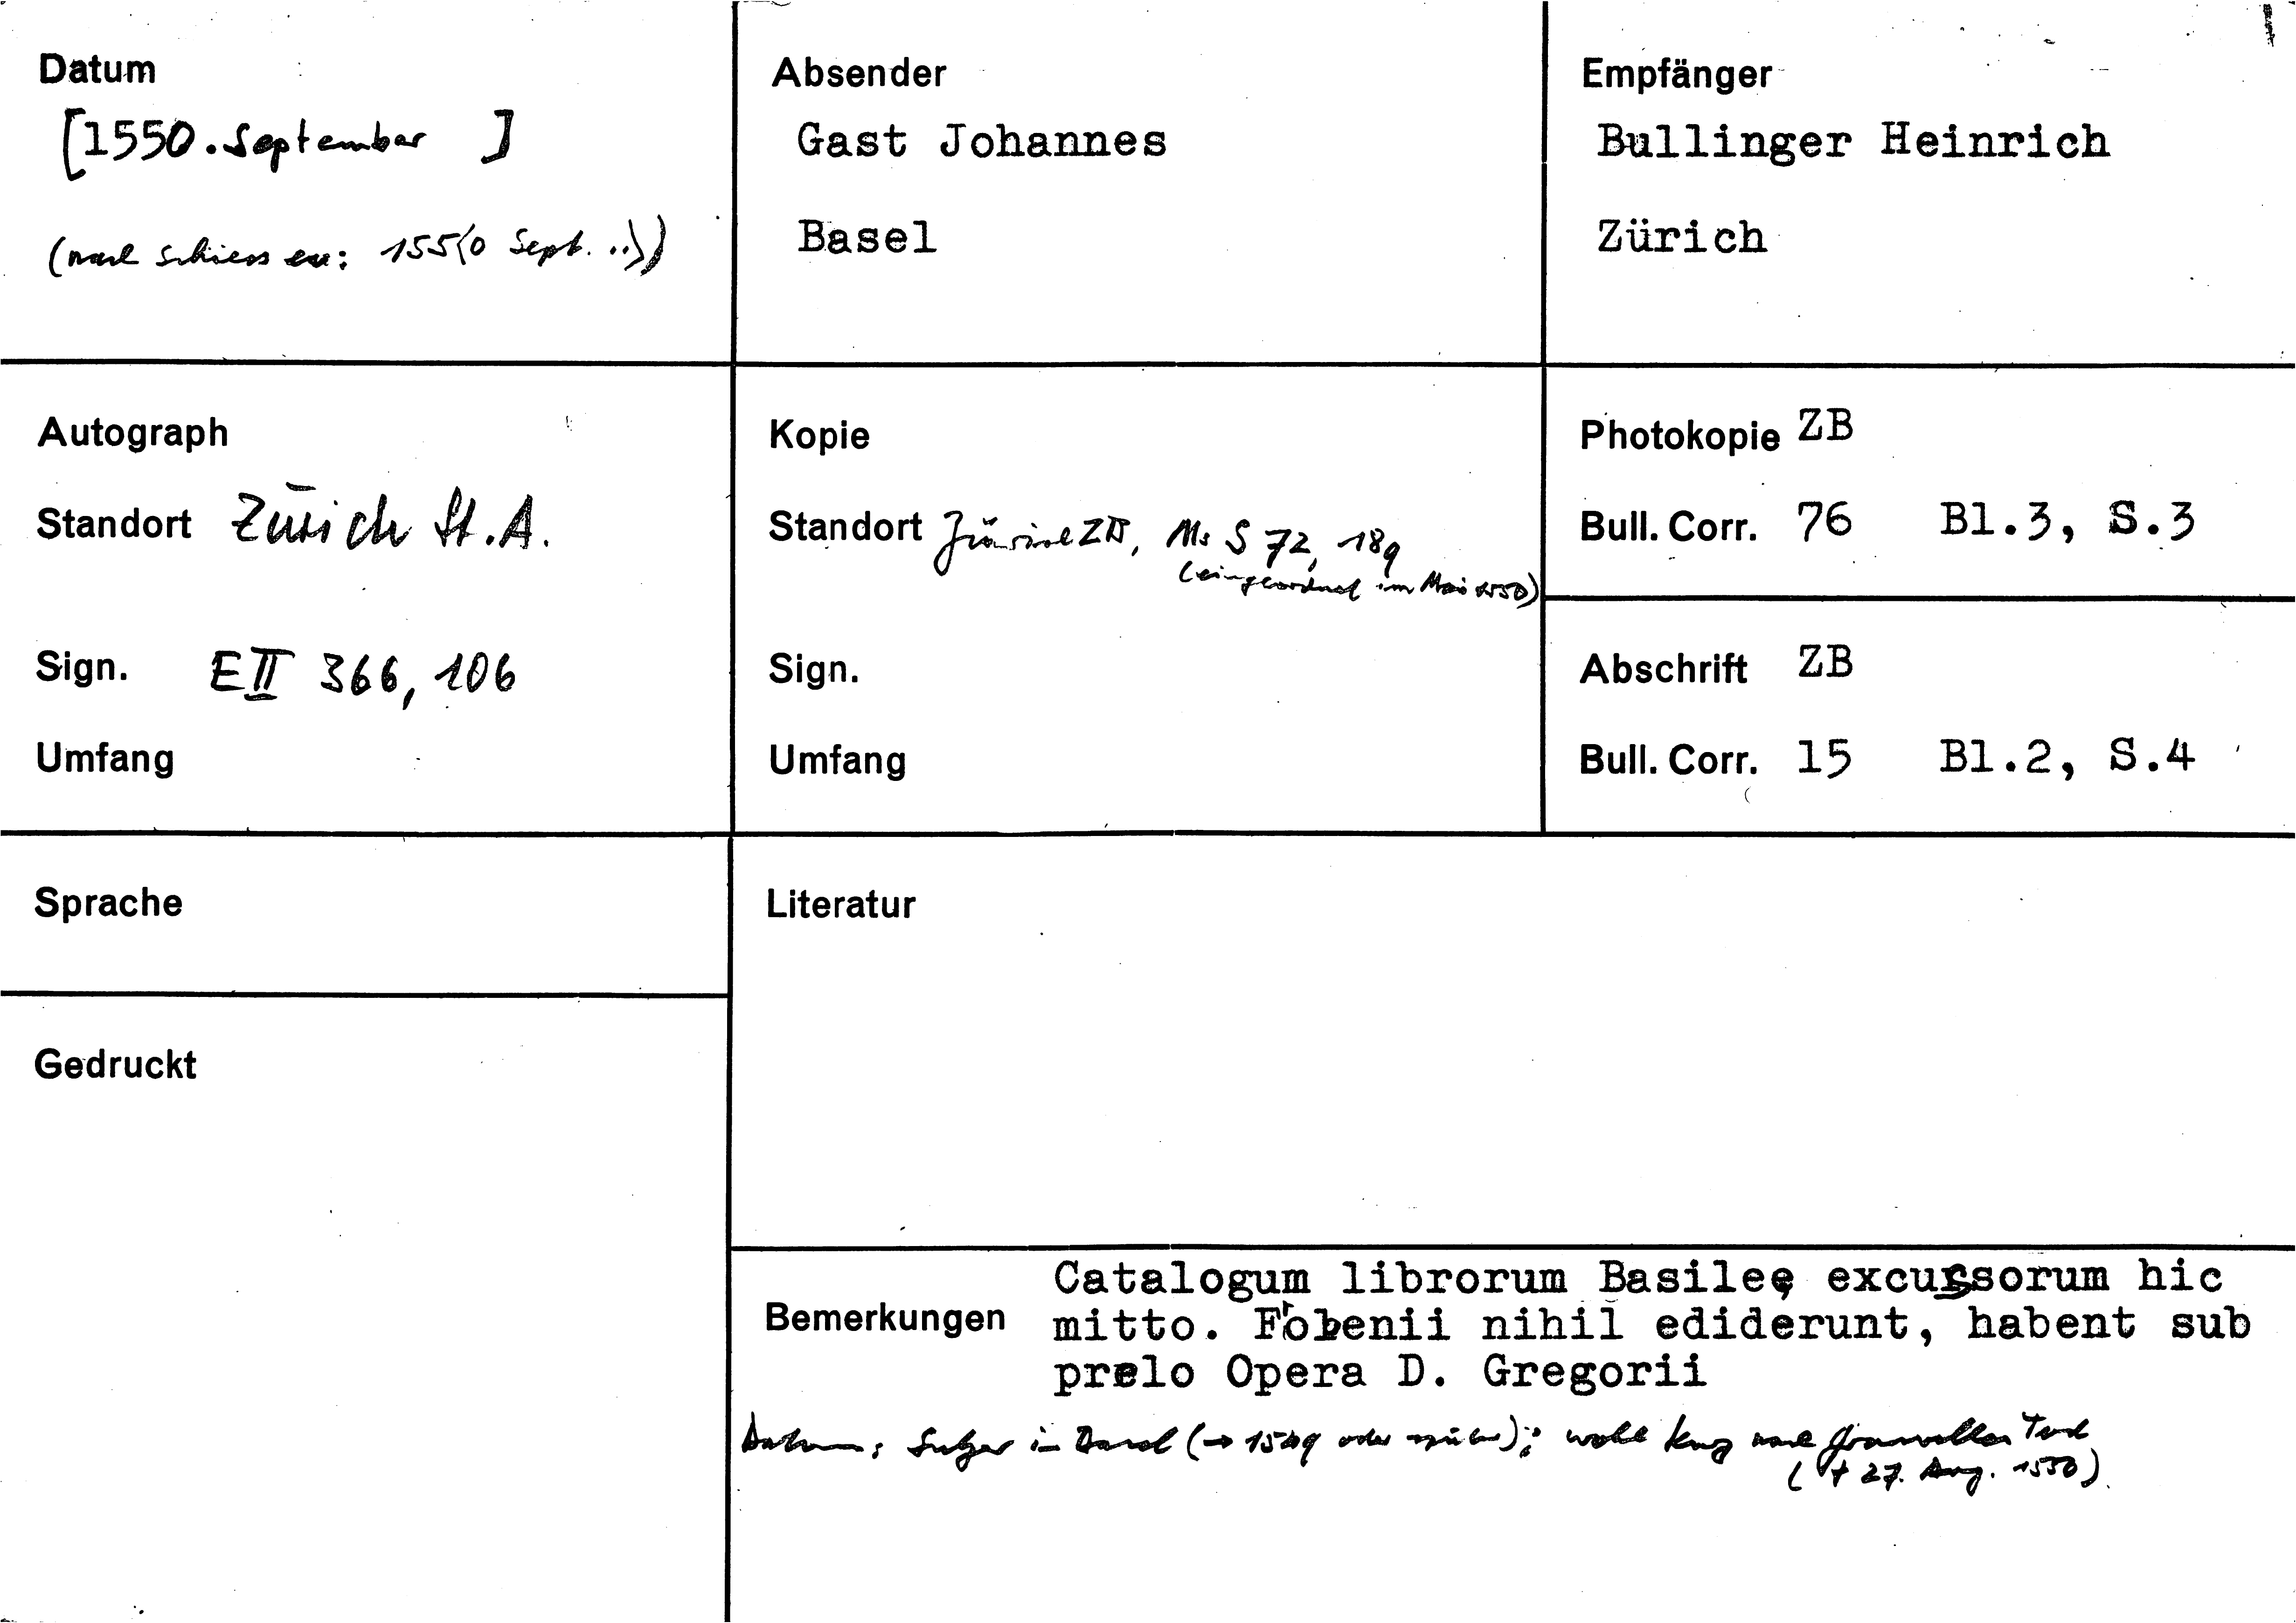 Datum
[1550. September ]
(nach Schiess ex: 155(0 Sept. ..))
Absender
Gast Johannes
Basel
Empfänger
Bullinger Heinrich
Zürich
Autograph
Standort Zürich St.A.
Sign. E II 366, 106
Umfang
Kopie
Standort Zürich ZB, Ms S 72, 189
(eingeordnet im Mai 1550)
Sign.
Umfang
Photokopie ZB
Bull. Corr. 76 Bl.3, S.3
Abschrift ZB
Bull. Corr. 15 Bl.2, S.4
Sprache
Gedruckt
Literatur
Bemerkungen
Catalogum librorum Basileę excussorum hic
mitto. Frobenii nihil ediderunt, habent sub
prelo Opera D. Gregorii
Datum: Sulzer in Basel (→ 1549 oder später); wohl kurz nach Granvellas Tod
(† 27. Aug. 1550).